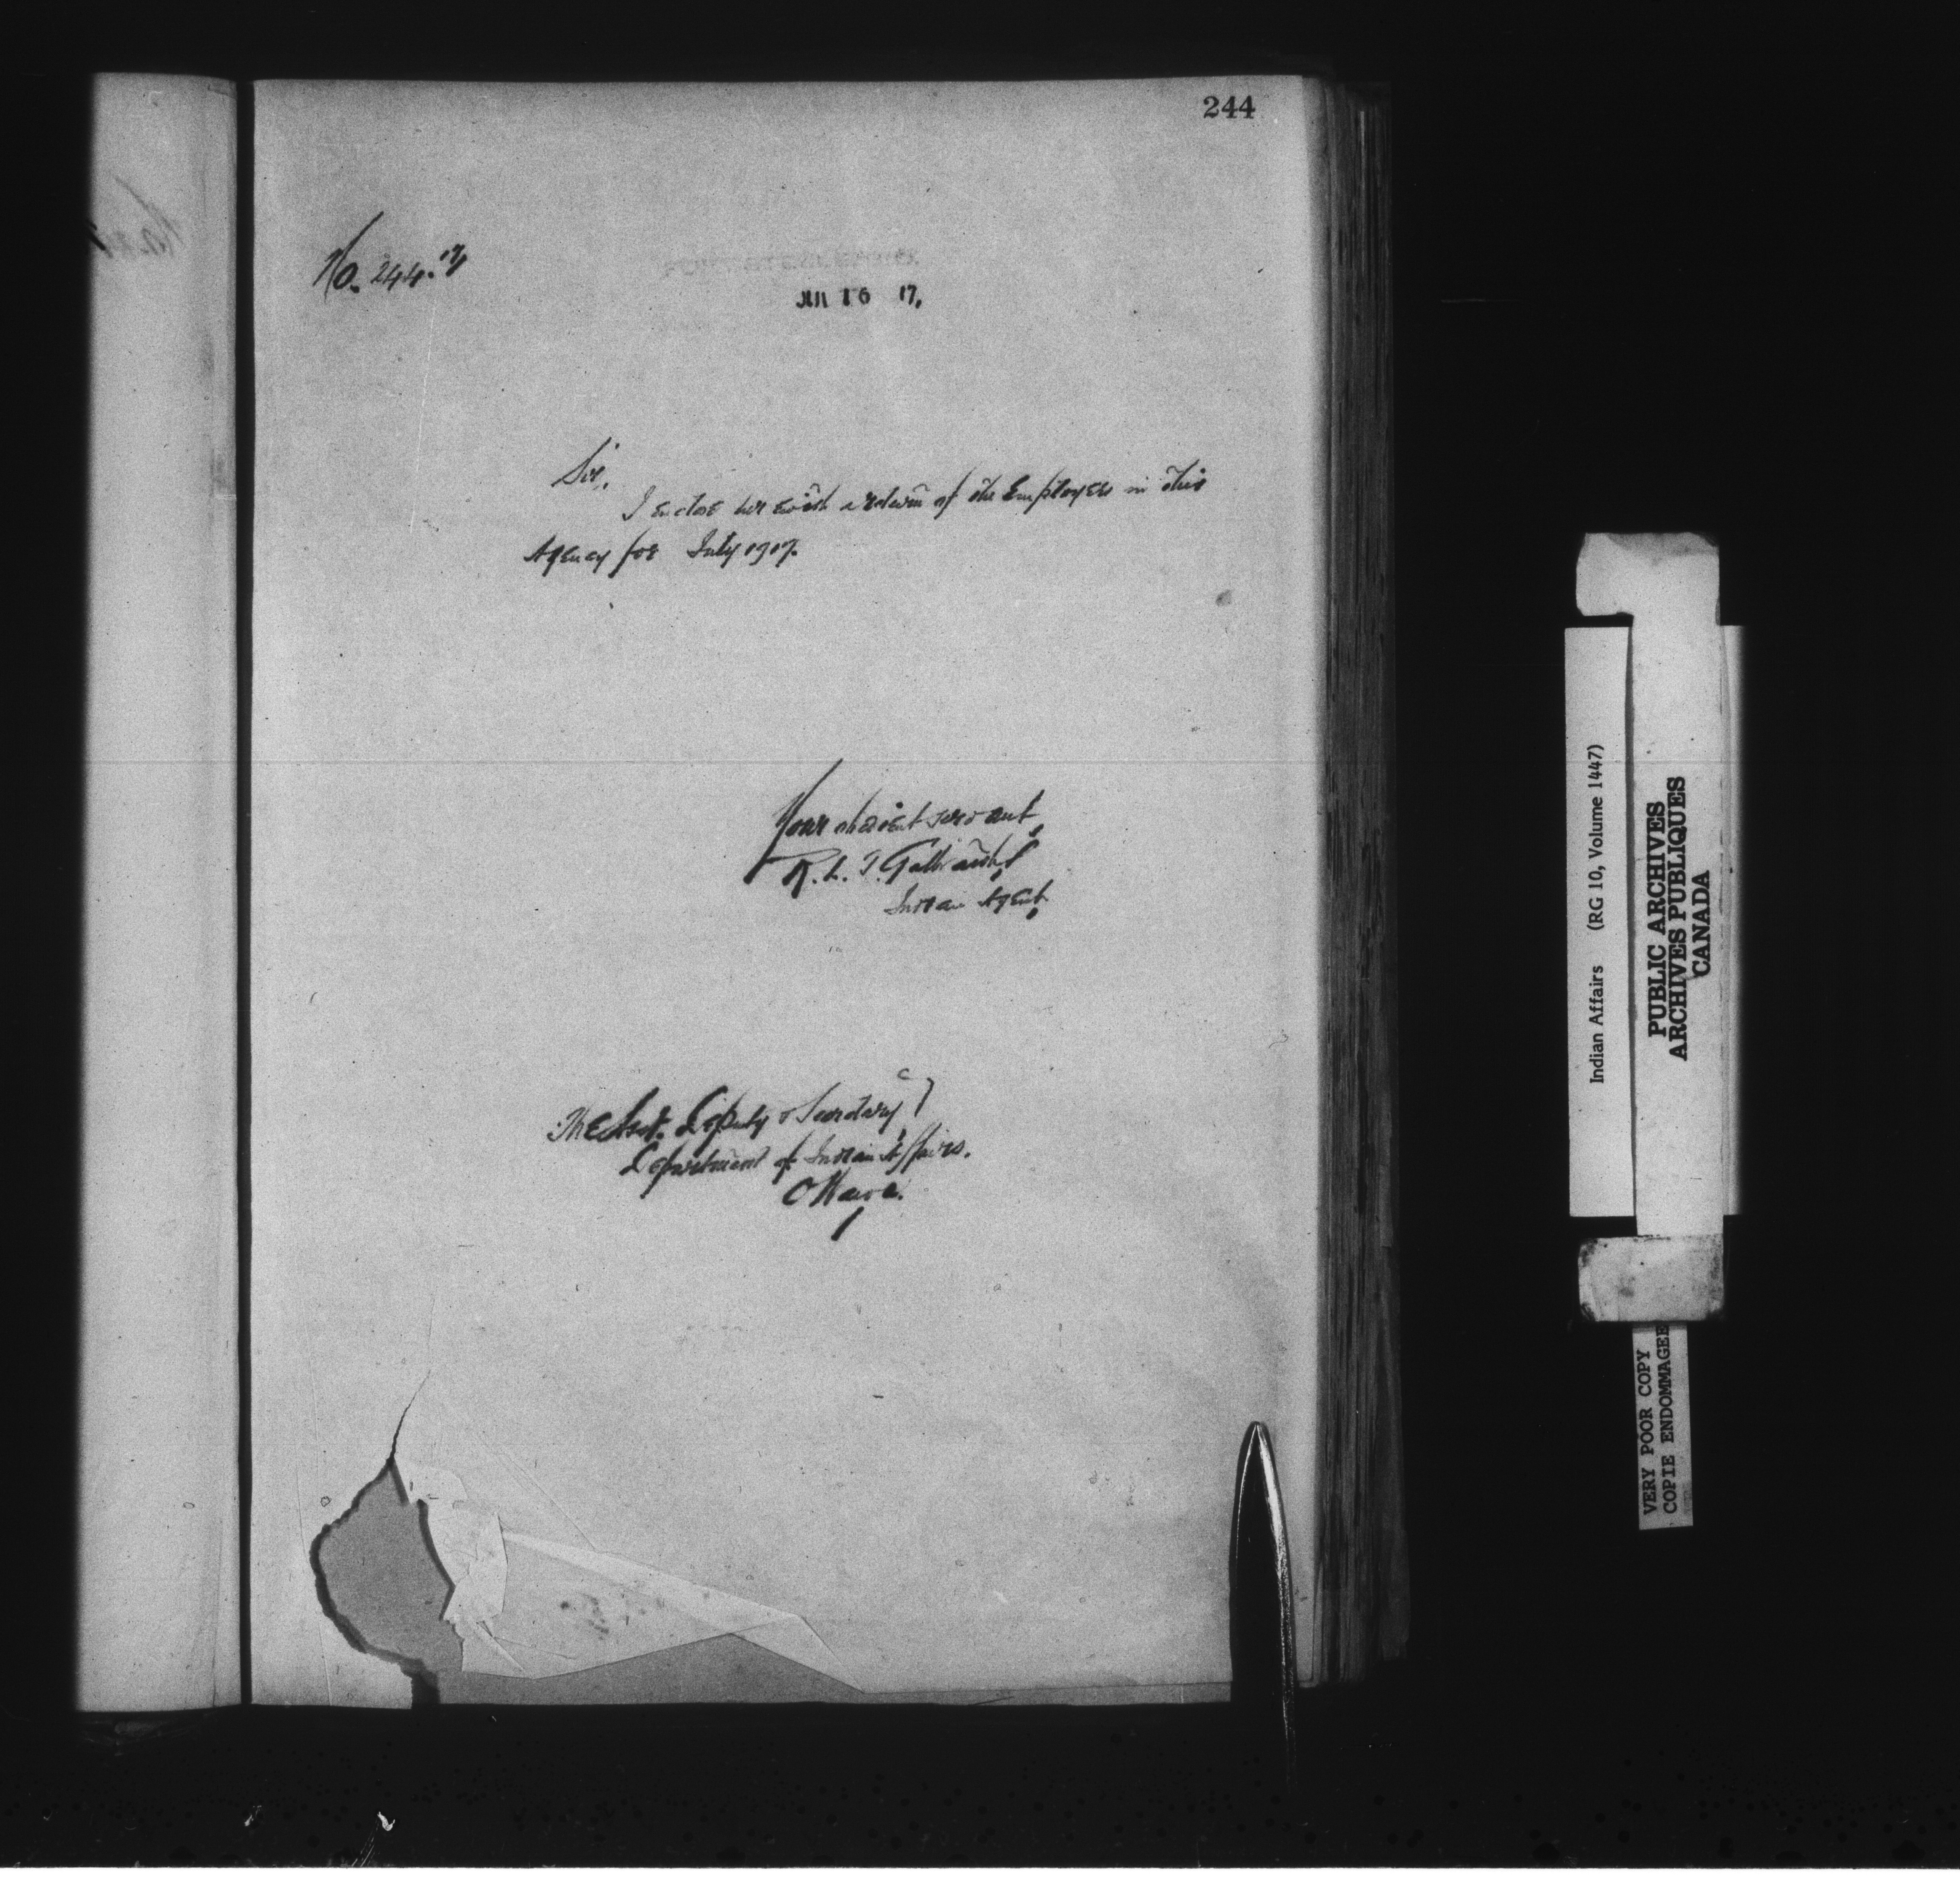 244
No. 244.17
JUL 16 17.
Sir,
I enclose herewith a return of the Employees in this
Agency for July 1917.
Your obedient servant,
R. L. T. Galbraith,
Indian Agent,
The Asst. Deputy & Secretary,
Department of Indian Affairs.
Ottawa.
Indian Affairs (RG 10, Volume 1447)
PUBLIC ARCHIVES
ARCHIVES PUBLIQUES
CANADA
VERY POOR COPY
COPIE ENDOMMAGEE